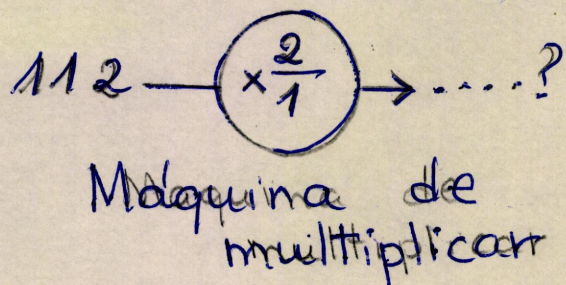 112 — × 2/1 → .....?
Máquina de
multiplicar